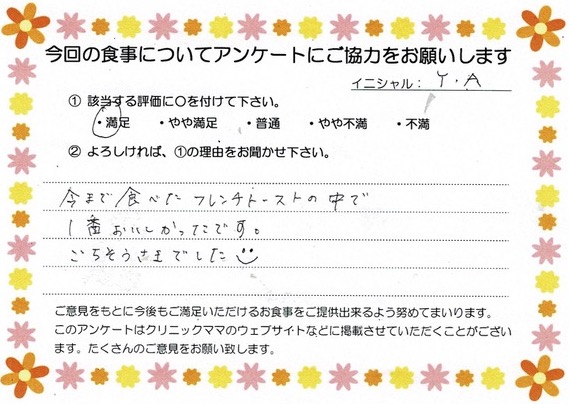 今回の食事についてアンケートにご協力をお願いします
イニシャル: Y・A
① 該当する評価に○を付けて下さい。
・満足 ・やや満足 ・普通 ・やや不満 ・不満
② よろしければ、①の理由をお聞かせ下さい。
今まで食べたフレンチトーストの中で
1番おいしかったです。
ごちそうさまでした
ご意見をもとに今後もご満足いただけるお食事をご提供出来るよう努めてまいります。
このアンケートはクリニックママのウェブサイトなどに掲載させていただくことがござい
ます。たくさんのご意見をお願い致します。